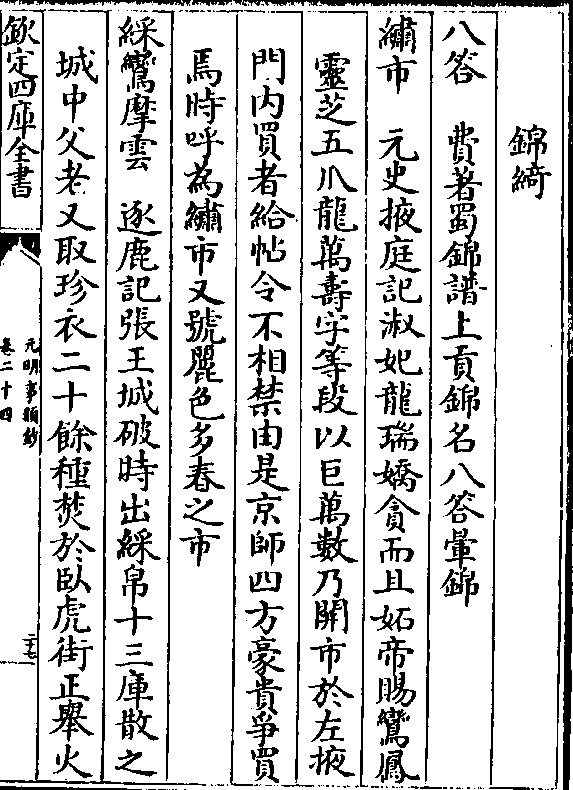 錦綺
八答　費著蜀錦譜上貢錦名八答暈錦
繡市　元史掖庭記淑妃龍瑞嬌貪而且妬帝賜鸞鳳
靈芝五爪龍萬壽字等段以巨萬數乃開市於左掖
門内買者給帖令不相禁由是京師四方豪貴爭買
焉時呼為繡市又號麗色多春之市
綵鸞摩雲　逐鹿記張王城破時出綵帛十三庫散之
城中父老又取珍衣二十餘種焚於臥虎街正舉火
欽定四庫全書
元明事類鈔
卷二十四
二十七